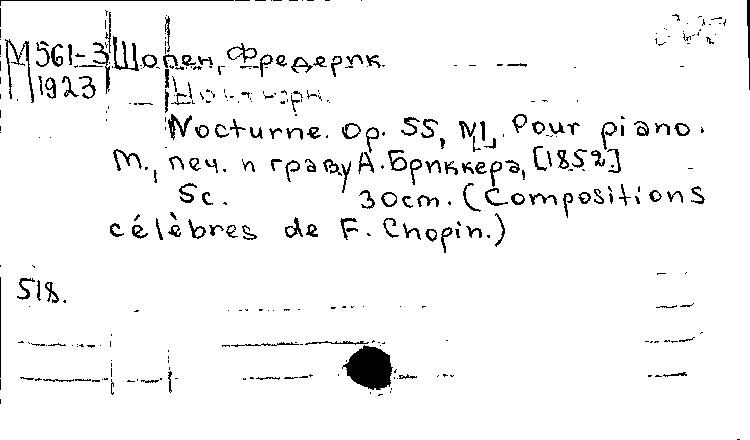 М 561-3 Шопен, Фредерик
1923 Ноктюрн.
Nocturne. Op. 55, №1. Pour piano.
М., печ. и грав. у А. Бриккера, [1852]
5с. 30cm. (Compositions
célèbres de F. Chopin.)
518.